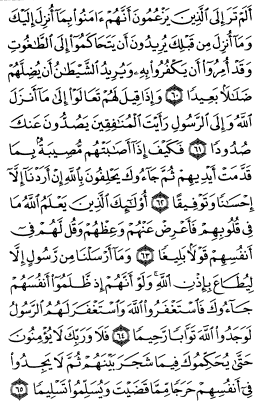 أَلَمْ تَرَ إِلَى ٱلَّذِينَ يَزْعُمُونَ أَنَّهُمْ ءَامَنُوا۟ بِمَآ أُنزِلَ إِلَيْكَ
وَمَآ أُنزِلَ مِن قَبْلِكَ يُرِيدُونَ أَن يَتَحَاكَمُوٓا۟ إِلَى ٱلطَّـٰغُوتِ
وَقَدْ أُمِرُوٓا۟ أَن يَكْفُرُوا۟ بِهِۦ وَيُرِيدُ ٱلشَّيْطَـٰنُ أَن يُضِلَّهُمْ
ضَلَـٰلًۢا بَعِيدًا ٦٠ وَإِذَا قِيلَ لَهُمْ تَعَالَوْا۟ إِلَىٰ مَآ أَنزَلَ
ٱللَّهُ وَإِلَى ٱلرَّسُولِ رَأَيْتَ ٱلْمُنَـٰفِقِينَ يَصُدُّونَ عَنكَ
صُدُودًا ٦١ فَكَيْفَ إِذَآ أَصَـٰبَتْهُم مُّصِيبَةٌۢ بِمَا
قَدَّمَتْ أَيْدِيهِمْ ثُمَّ جَآءُوكَ يَحْلِفُونَ بِٱللَّهِ إِنْ أَرَدْنَآ إِلَّآ
إِحْسَـٰنًا وَتَوْفِيقًا ٦٢ أُو۟لَـٰٓئِكَ ٱلَّذِينَ يَعْلَمُ ٱللَّهُ مَا
فِى قُلُوبِهِمْ فَأَعْرِضْ عَنْهُمْ وَعِظْهُمْ وَقُل لَّهُمْ فِىٓ
أَنفُسِهِمْ قَوْلًۢا بَلِيغًا ٦٣ وَمَآ أَرْسَلْنَا مِن رَّسُولٍ إِلَّا
لِيُطَاعَ بِإِذْنِ ٱللَّهِ ۚ وَلَوْ أَنَّهُمْ إِذ ظَّلَمُوٓا۟ أَنفُسَهُمْ
جَآءُوكَ فَٱسْتَغْفَرُوا۟ ٱللَّهَ وَٱسْتَغْفَرَ لَهُمُ ٱلرَّسُولُ
لَوَجَدُوا۟ ٱللَّهَ تَوَّابًا رَّحِيمًا ٦٤ فَلَا وَرَبِّكَ لَا يُؤْمِنُونَ
حَتَّىٰ يُحَكِّمُوكَ فِيمَا شَجَرَ بَيْنَهُمْ ثُمَّ لَا يَجِدُوا۟
فِىٓ أَنفُسِهِمْ حَرَجًا مِّمَّا قَضَيْتَ وَيُسَلِّمُوا۟ تَسْلِيمًا ٦٥